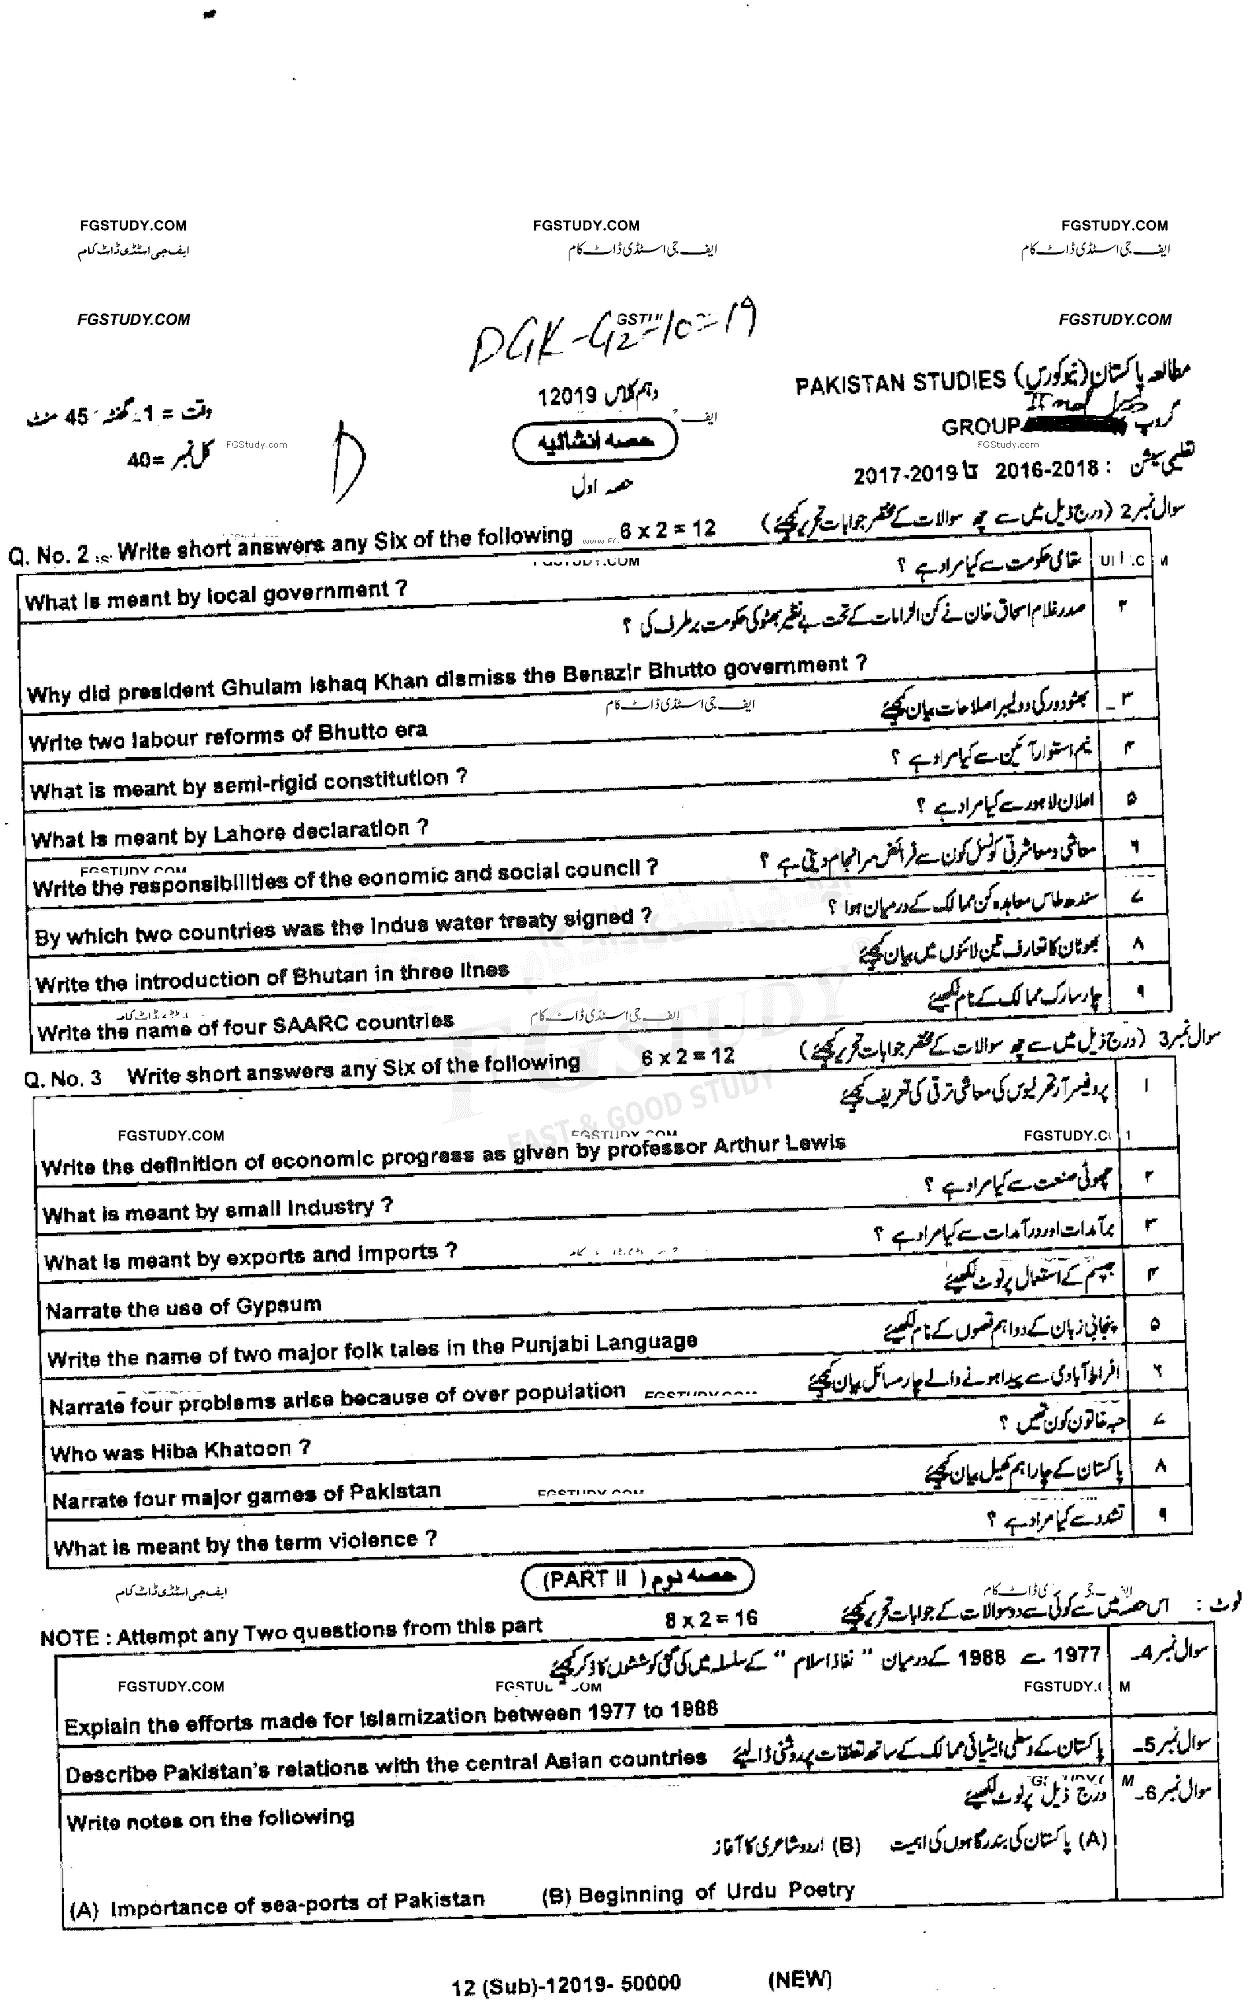 FGSTUDY.COM FGSTUDY.COM FGSTUDY.COM
ایف جی اسٹڈی ڈاٹ کام ایف جی اسٹڈی ڈاٹ کام ایف جی اسٹڈی ڈاٹ کام
FGSTUDY.COM FGSTUDY.COM
DGK-G2-10-19
PAKISTAN STUDIES مطالعہ پاکستان (نیو کورس)
12019 دہم کلاس
وقت = 1 گھنٹہ 45 منٹ
GROUP گروپ
حصہ انشائیہ
کل نمبر =40
FGStudy.com FGStudy.com
D
تعلیمی سیشن : 2016-2018 تا 2017-2019
حصہ اول
سوال نمبر 2 (درج ذیل میں سے چھ سوالات کے مختصر جوابات تحریر کیجئے)
Q. No. 2 Write short answers any Six of the following 6 x 2 = 12
مقامی حکومت سے کیا مراد ہے ؟
What is meant by local government ?
۲ صدر غلام اسحاق خان نے کن الزامات کے تحت بے نظیر بھٹو کی حکومت برطرف کی ؟
Why did president Ghulam Ishaq Khan dismiss the Benazir Bhutto government ?
ایف جی اسٹڈی ڈاٹ کام
۳ بھٹو دور کی دو لیبر اصلاحات بیان کیجئے
Write two labour reforms of Bhutto era
۴ نیم استوار آئین سے کیا مراد ہے ؟
What is meant by semi-rigid constitution ?
۵ اعلان لاہور سے کیا مراد ہے ؟
What is meant by Lahore declaration ?
۶ معاشی و معاشرتی کونسل کون سے فرائض سرانجام دیتی ہے ؟
FGSTUDY.COM
Write the responsibilities of the eonomic and social council ?
۷ سندھ طاس معاہدہ کن ممالک کے درمیان ہوا ؟
By which two countries was the Indus water treaty signed ?
۸ بھوٹان کا تعارف تین لائنوں میں بیان کیجئے
Write the introduction of Bhutan in three lines
۹ چار سارک ممالک کے نام لکھیئے
Write the name of four SAARC countries
ایف جی اسٹڈی ڈاٹ کام
FGSTUDY
EAST & GOOD STUDY
سوال نمبر 3 (درج ذیل میں سے چھ سوالات کے مختصر جوابات تحریر کیجئے)
Q. No. 3 Write short answers any Six of the following 6 x 2 = 12
۱ پروفیسر آرتھر لیوس کی معاشی ترقی کی تعریف کیجئے
FGSTUDY.COM FGSTUDY.COM
Write the definition of economic progress as given by professor Arthur Lewis
۲ چھوٹی صنعت سے کیا مراد ہے ؟
What is meant by small Industry ?
۳ برآمدات اور درآمدات سے کیا مراد ہے ؟
What is meant by exports and imports ?
۴ جپسم کے استعمال پر نوٹ لکھیئے
Narrate the use of Gypsum
۵ پنجابی زبان کے دو اہم قصوں کے نام لکھیئے
Write the name of two major folk tales in the Punjabi Language
۶ افراط آبادی سے پیدا ہونے والے چار مسائل بیان کیجئے
Narrate four problems arise because of over population FGSTUDY.COM
۷ حبہ خاتون کون تھیں ؟
Who was Hiba Khatoon ?
۸ پاکستان کے چار اہم کھیل بیان کیجئے
Narrate four major games of Pakistan FGSTUDY.COM
۹ تشدد سے کیا مراد ہے ؟
What is meant by the term violence ?
حصہ دوم ( PART II)
ایف جی اسٹڈی ڈاٹ کام
نوٹ : اس حصہ میں سے کوئی سے دو سوالات کے جوابات تحریر کیجئے
NOTE : Attempt any Two questions from this part 8 x 2 = 16
سوال نمبر 4۔ 1977 سے 1988 کے درمیان " نفاذ اسلام " کے سلسلہ میں کی گئی کوششوں کا ذکر کیجئے
FGSTUDY.COM
Explain the efforts made for Islamization between 1977 to 1988
سوال نمبر 5۔ پاکستان کے وسطی ایشیائی ممالک کے ساتھ تعلقات پر روشنی ڈالیئے
Describe Pakistan's relations with the central Asian countries
سوال نمبر 6۔ درج ذیل پر نوٹ لکھیئے
Write notes on the following
(A) پاکستان کی بندرگاہوں کی اہمیت (B) اردو شاعری کا آغاز
(A) Importance of sea-ports of Pakistan (B) Beginning of Urdu Poetry
12 (Sub)-12019- 50000 (NEW)